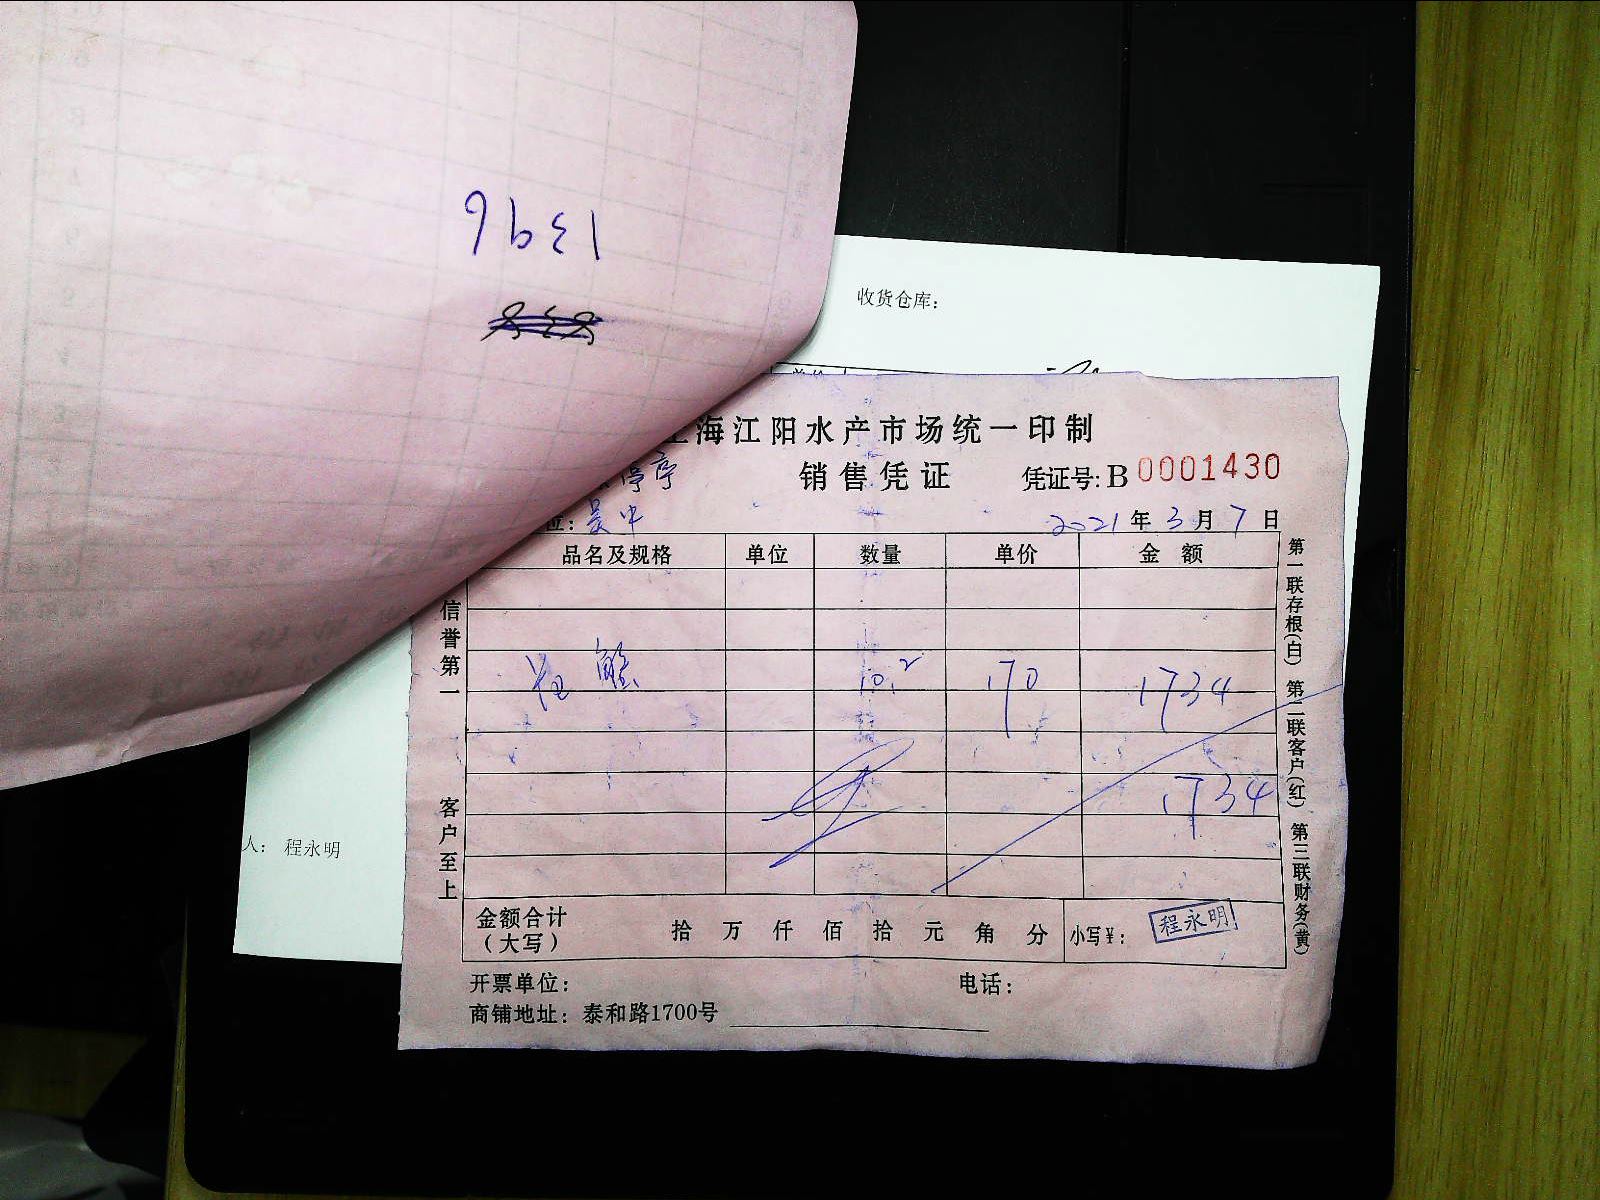 1396
收货仓库：
海江阳水产市场统一印制
销售凭证 凭证号：B 0001430
停亭
位：吴中 2021年3月7日
品名及规格 单位 数量 单价 金额
蟹 10.2 170 1734
1734
信誉第一
客户至上
第一联存根(白) 第二联客户(红) 第三联财务(黄)
人： 程永明
金额合计
（大写） 拾 万 仟 佰 拾 元 角 分 小写¥： 程永明
开票单位： 电话：
商铺地址：泰和路1700号